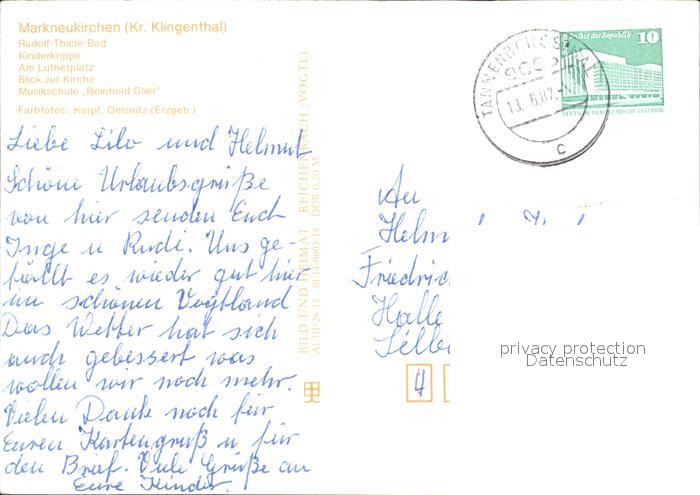 Markneukirchen (Kr. Klingenthal)
Rudolf-Thiele-Bad
Kinderkrippe
Am Lutherplatz
Blick zur Kirche
Musikschule „Reinhold Glier"
Farbfotos: Karpf, Oelsnitz (Erzgeb.)
Liebe Lilo und Helmut
Schöne Urlaubsgrüße
von hier senden Euch
Inge u Rudi. Uns ge-
fällt es wieder gut hier
im schönen Vogtland
Das Wetter hat sich
auch gebessert was
wollen wir noch mehr.
Vielen Dank noch für
Euren Kartengruß u für
den Brief. Viele Grüße an
Eure Kinder.
BILD UND HEIMAT REICHENBACH (VOGTL)
DDR 0,20 M
Palast der Republik
10
DEUTSCHE DEMOKRATISCHE REPUBLIK
13. 6.87
c
An
Helm
Friedric
Halle
4
privacy protection
Datenschutz